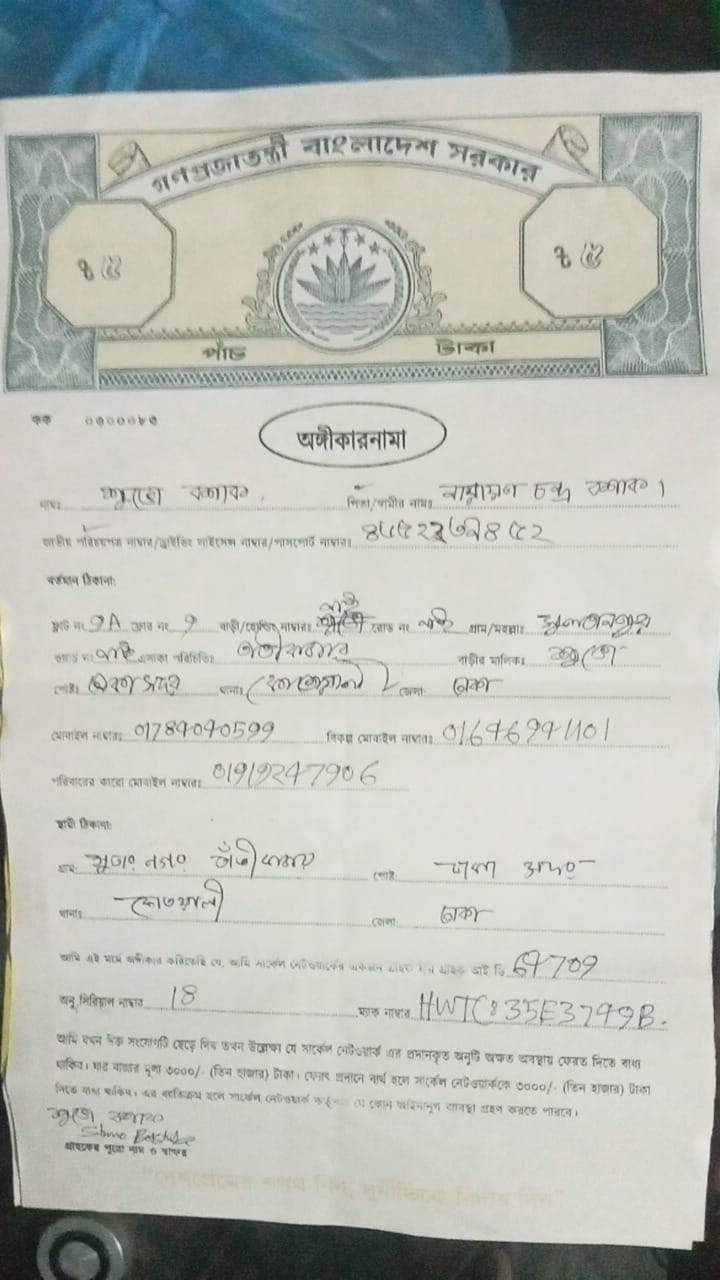 গণপ্রজাতন্ত্রী বাংলাদেশ সরকার
৳ ৫ ৳ ৫
পাঁচ টাকা
কক ০০০০০৮৩
অঙ্গীকারনামা
নামঃ শুভো বসাক পিতা/স্বামীর নামঃ নারায়ন চন্দ্র বসাক।
জাতীয় পরিচয়পত্র নাম্বার/ড্রাইভিং লাইসেন্স নাম্বার/পাসপোর্ট নাম্বারঃ
বর্তমান ঠিকানা:
ফ্লাট নং 7A ফ্লোর নং 7 বাড়ী/হোল্ডিং নাম্বারঃ নাই রোড নং নাই গ্রাম/মহল্লাঃ
ওয়ার্ড নং নাই এলাকা পরিচিতিঃ তাঁতীবাজার বাড়ীর মালিকঃ শুভো
পোষ্টঃ ঢাকা সদর থানাঃ কোতোয়ালী জেলা: ঢাকা
মোবাইল নাম্বারঃ 01784040599 বিকল্প মোবাইল নাম্বারঃ
পরিবারের কারো মোবাইল নাম্বারঃ 01919247906
স্থায়ী ঠিকানা:
গ্রাম তাঁতী বাজার পোষ্ট: ঢাকা সদর
থানাঃ কোতয়ালী জেলা: ঢাকা
আমি এই মর্মে অঙ্গীকার করিতেছি যে, আমি সার্কেল নেটওয়ার্কের একজন গ্রাহক আইডি 67709
অনু সিরিয়াল নাম্বার 18 ম্যাক নাম্বার HWTC: 35E3749B.
আমি যখন নিজ সংযোগটি ছেড়ে দিব তখন উল্লেখ্য যে সার্কেল নেটওয়ার্ক এর প্রদানকৃত অনুটি অক্ষত অবস্থায় ফেরত দিতে বাধ্য
থাকিব। যার বাজার মূল্য ৩০০০/- (তিন হাজার) টাকা। ফেরৎ প্রদানে ব্যর্থ হলে সার্কেল নেটওয়ার্ককে ৩০০০/- (তিন হাজার) টাকা
দিতে বাধ্য থাকিব। এর ব্যতিক্রম হলে সার্কেল নেটওয়ার্ক কর্তৃপক্ষ যে কোন আইনানুগ ব্যবস্থা গ্রহণ করতে পারবে।
শুভো বসাক
গ্রাহকের পুরো নাম ও স্বাক্ষর